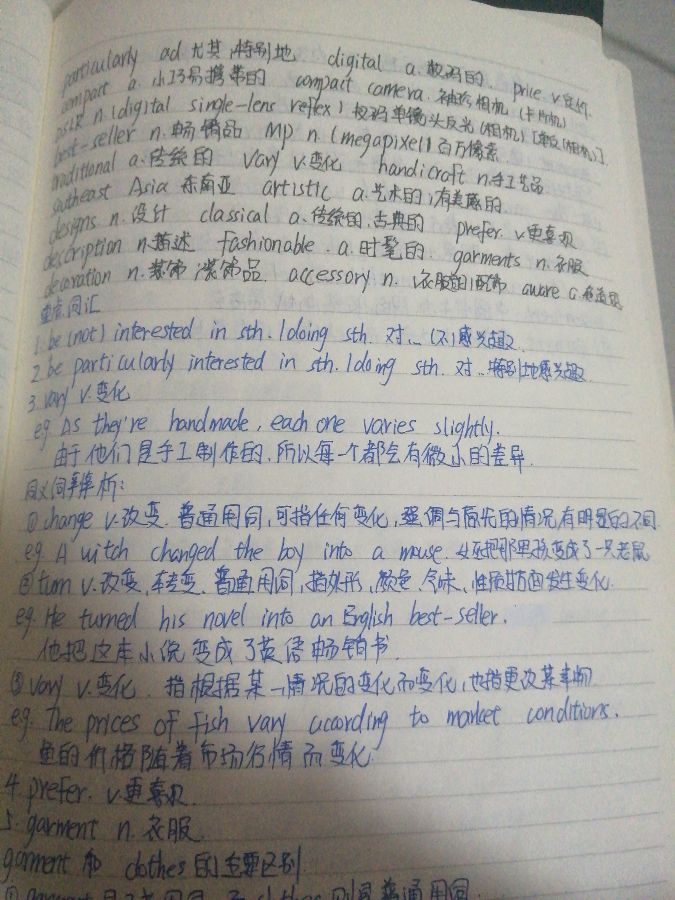 particularly ad 尤其,特别地 digital a.数码的. price v.定价
compact a.小巧易携带的 compact camera.袖珍相机(卡片机)
DSLR n.(digital single-lens reflex)数码单镜头反光(相机)[单反(相机)].
best-seller n.畅销品 MP n.(megapixel)百万像素
traditional a.传统的 vary v.变化 handicraft n.手工艺品
southeast Asia 东南亚 artistic a.艺术的;有美感的
designs n.设计 classical a.传统的,古典的 prefer v.更喜欢
description n.描述 fashionable.a.时髦的 garments n.衣服
decoration n.装饰;装饰品. accessory n.(衣服的)配饰 aware a.
重点词汇
1. be (not) interested in sth./doing sth. 对…(不)感兴趣.
2. be particularly interested in sth./doing sth. 对…特别地感兴趣.
3. vary v.变化
eg. As they're handmade, each one varies slightly.
由于他们是手工制作的,所以每一个都会有微小的差异.
同义词解析:
① change v.改变.普通用词,可指任何变化,强调与原先的情况有明显的不同.
eg. A witch changed the boy into a mouse. 女巫把那男孩变成了一只老鼠
② turn v.改变,转变.普通用词,指外形,颜色,气味,性质等方面发生变化.
eg. He turned his novel into an English best-seller.
他把这本小说变成了英语畅销书.
③ vary v.变化.指根据某一情况的变化而变化,也指更改某事物
eg. The prices of fish vary according to market conditions.
鱼的价格随着市场行情而变化.
4. prefer. v.更喜欢
5. garment n.衣服.
garment 和 clothes的主要区别